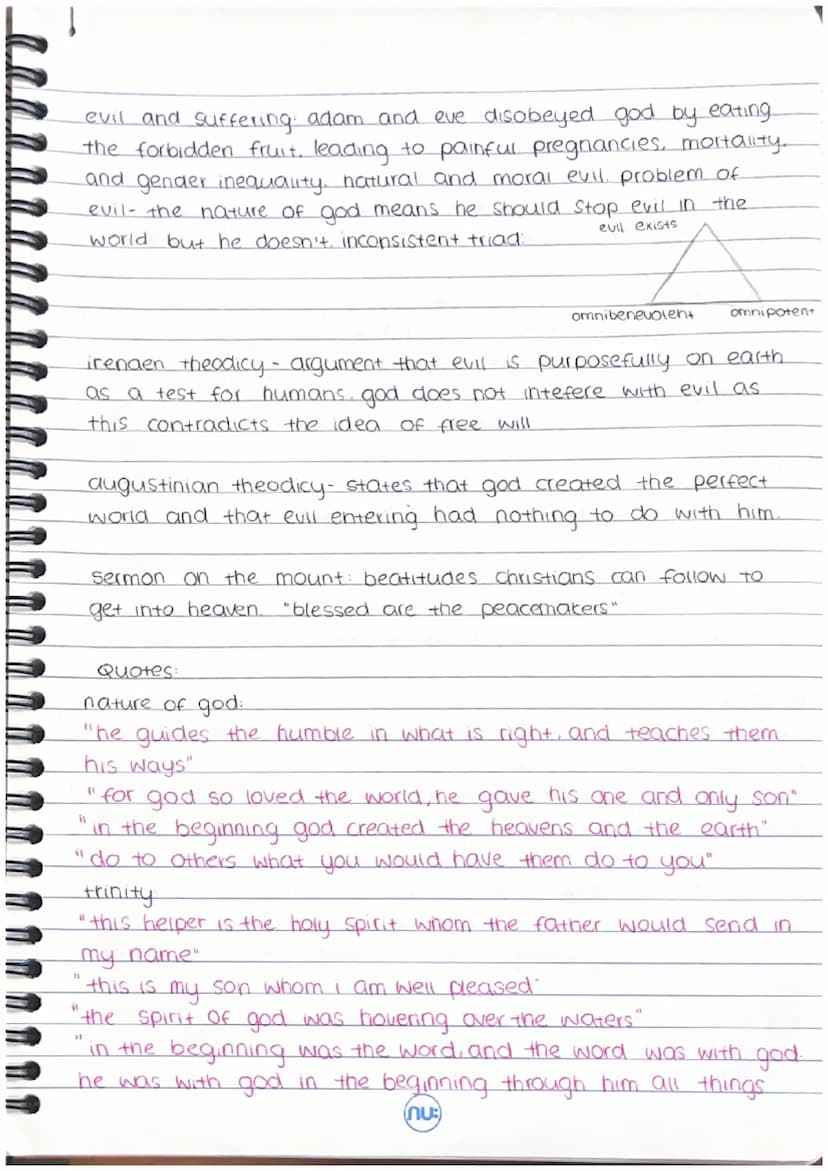 evil and suffering: adam and eve disobeyed god by eating
the forbidden fruit, leading to painful pregnancies, mortality,
and gender inequality. natural and moral evil. problem of
evil- the nature of god means he should stop evil in the
world but he doesn't. inconsistent triad:
evil exists
omnibenevolent omnipotent
irenaen theodicy - argument that evil is purposefully on earth
as a test for humans. god does not intefere with evil as
this contradicts the idea of free will
augustinian theodicy- states that god created the perfect
world and that evil entering had nothing to do with him.
sermon on the mount: beatitudes christians can follow to
get into heaven. "blessed are the peacemakers"
Quotes:
nature of god:
"he guides the humble in what is right, and teaches them
his ways"
"for god so loved the world, he gave his one and only son"
"in the beginning god created the heavens and the earth"
"do to others what you would have them do to you"
trinity
"this helper is the holy spirit whom the father would send in
my name"
"this is my son whom i am well pleased"
"the spirit of god was hovering over the waters"
"in the beginning was the word, and the word was with god.
he was with god in the beginning through him all things
nu: